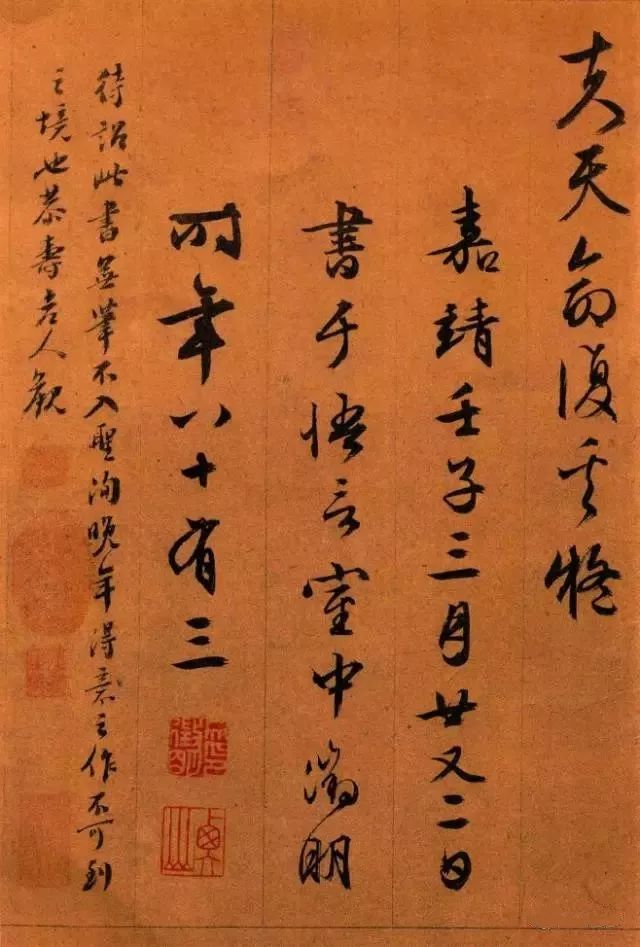 夫天命復奚疑
嘉靖壬子三月廿又二日
書于悟言室中徵明
時年八十有三
衡山
待詔此書無筆不入聖洵晚年得意之作不可到
之境也恭壽老人觀